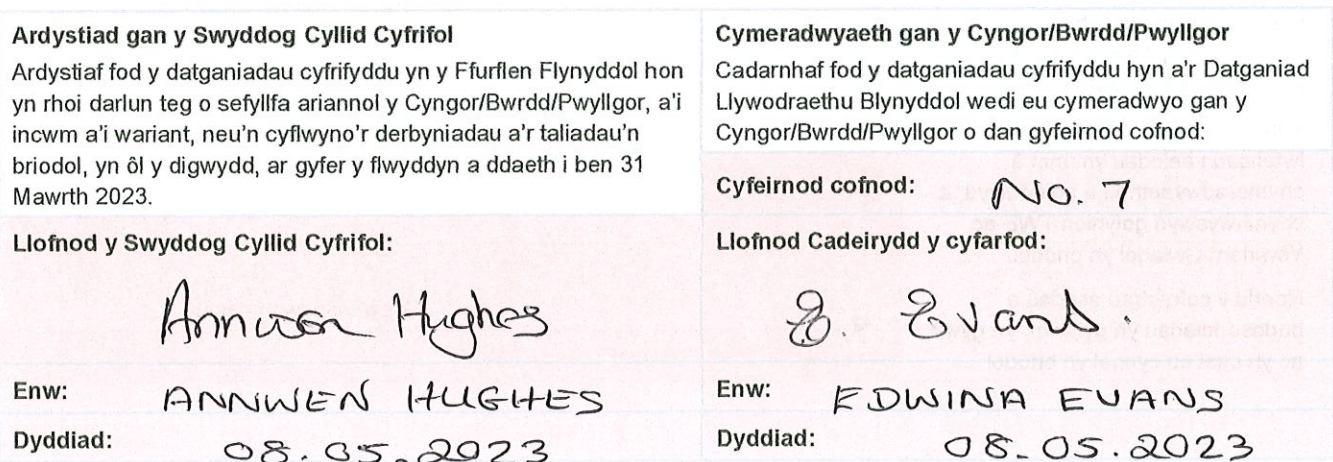 Ardystiad gan y Swyddog Cyllid Cyfrifol
Ardystiaf fod y datganiadau cyfrifyddu yn y Ffurflen Flynyddol hon
yn rhoi darlun teg o sefyllfa ariannol y Cyngor/Bwrdd/Pwyllgor, a'i
incwm a'i wariant, neu'n cyflwyno'r derbyniadau a'r taliadau'n
briodol, yn ôl y digwydd, ar gyfer y flwyddyn a ddaeth i ben 31
Mawrth 2023.
Llofnod y Swyddog Cyllid Cyfrifol:
Annwen Hughes
Enw: ANNWEN HUGHES
Dyddiad: 08.05.2023
Cymeradwyaeth gan y Cyngor/Bwrdd/Pwyllgor
Cadarnhaf fod y datganiadau cyfrifyddu hyn a'r Datganiad
Llywodraethu Blynyddol wedi eu cymeradwyo gan y
Cyngor/Bwrdd/Pwyllgor o dan gyfeirnod cofnod:
Cyfeirnod cofnod: No. 7
Llofnod Cadeirydd y cyfarfod:
E. Evans.
Enw: EDWINA EVANS
Dyddiad: 08.05.2023